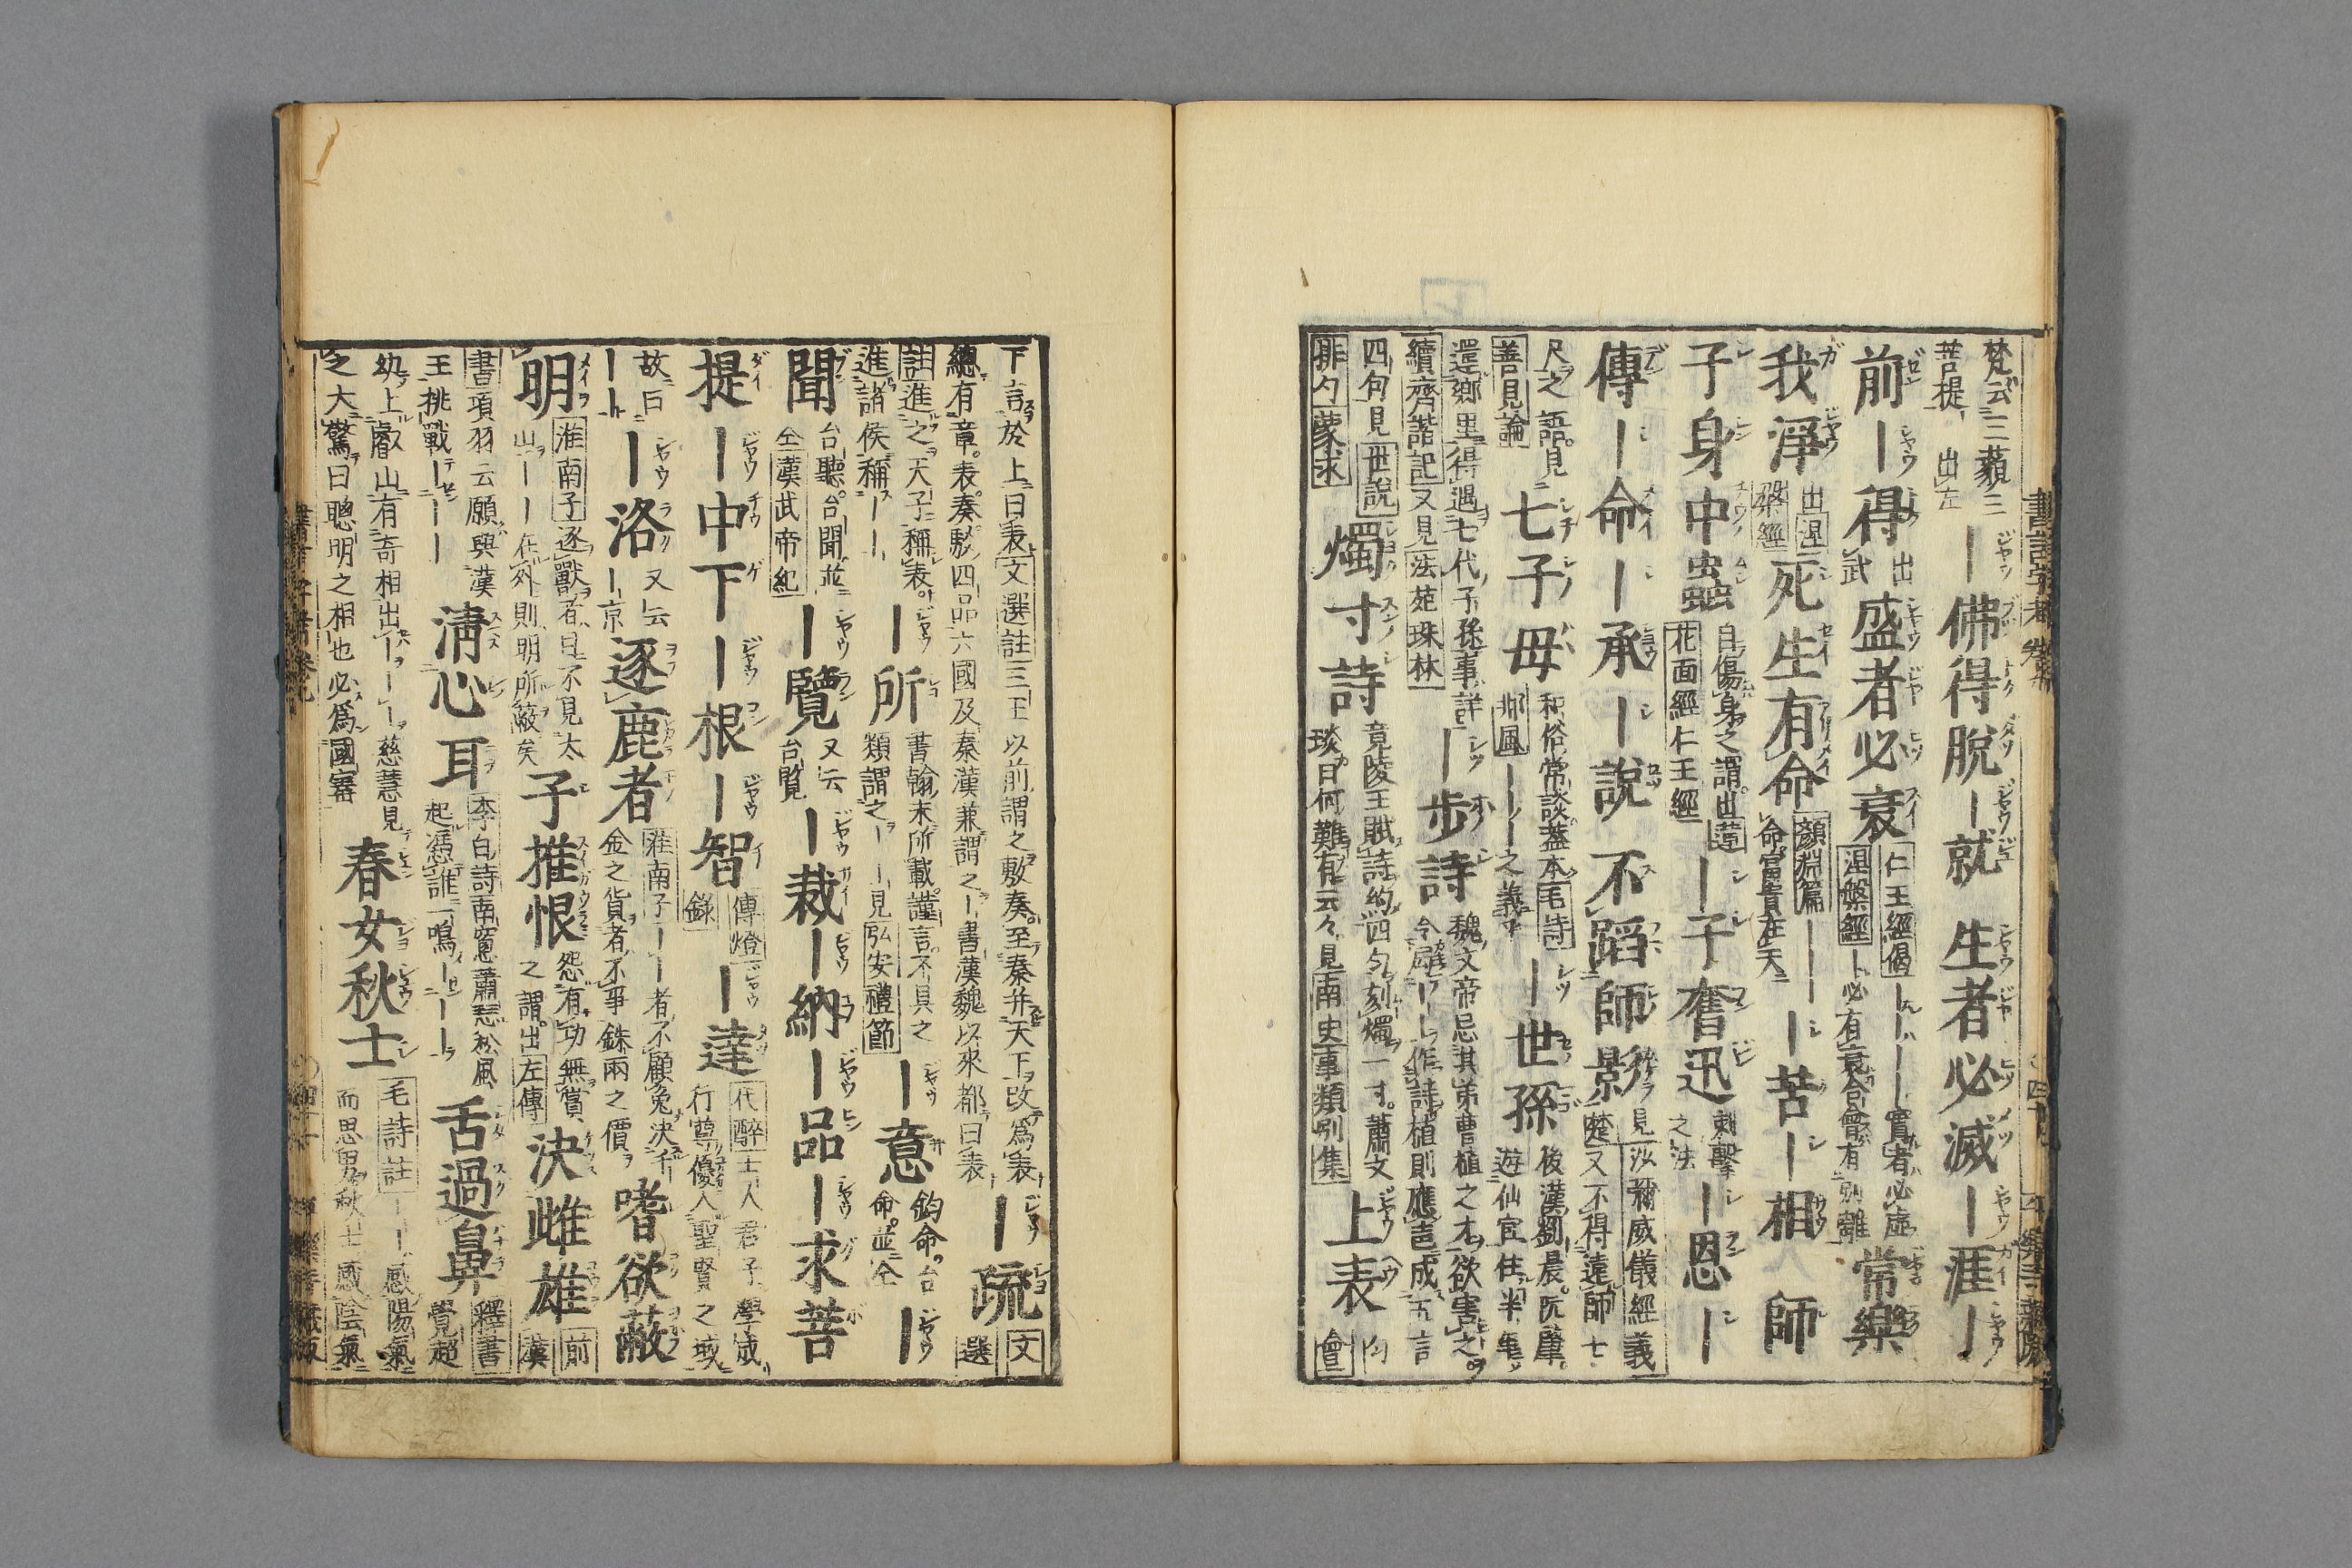 梵云三藐三
菩提 出左
｜佛得脫｜就 生者必滅｜涯｜
前｜得 出武
盛者必衰 仁王經偈｜｜｜｜實者必虛
涅槃經｜必有衰合會有別離
常樂
我淨 出涅槃經
死生有命 顏淵篇｜｜｜｜
命富貴在天
｜苦｜相 師
子身中蟲 自傷身之謂也蓮
花面經仁王經
｜子奮迅 刺擊之法
｜恩｜
傳｜命｜承｜說 不蹈師影 見沙彌威儀經義
楚又不得遠師七
尺之 語見
善見論
七子母 和俗常談蓋本毛詩
邶風｜｜｜之義乎
｜世孫 後漢劉晨阮肇
遊仙家住半年
還鄉里得遇七代子孫事詳
續齊諧記又見法苑珠林
｜步詩 魏文帝忌其弟曹植之才欲害之
令屬｜｜作詩植則應言成五言
四句見世說
排勺蒙求
燭寸詩 竟陵王賦詩約四勺刻燭一寸蕭文
琰曰何難有云々見南史事類別集
上表 會
下言於上曰表文選註三王以前謂之敷奏至秦并天下改爲表
總有章表奏駁四品六國及秦漢兼謂之｜書漢魏以來都曰表
｜疏 文選
註進之天子稱表
進諸侯稱｜｜
｜所 書翰末所載謹言不具之
類謂之｜｜見弘安禮節
｜意 鈞命台
命並仝
｜
聞 台聽台聞並
仝漢武帝紀
｜覽 又云
台覽
｜裁｜納｜品｜求菩
提｜中下｜根｜智 傳燈
錄
｜達 代醉士人君子學成
行尊優入聖賢之域
故曰
｜｜
｜洛 又云
｜京
逐鹿者 淮南子｜｜者不顧兔決千
金之貨者不爭銖兩之價
嗜欲蔽
明 淮南子逐獸者目不見太
山｜｜｜在外則明所蔽矣
子推恨 怨有功無賞
之謂出左傳
決雌雄 前
漢
書項羽云願與漢
王挑戰｜｜｜
淸心耳 李白詩南窓蕭瑟松風
起憑誰一鳴｜｜｜
舌過鼻 釋書
覺超
幼上叡山有奇相出｜｜｜慈慧見
之大驚曰聰明之相也必爲國審
春女秋士 毛詩註｜｜感陽氣
而思男秋士感陰氣